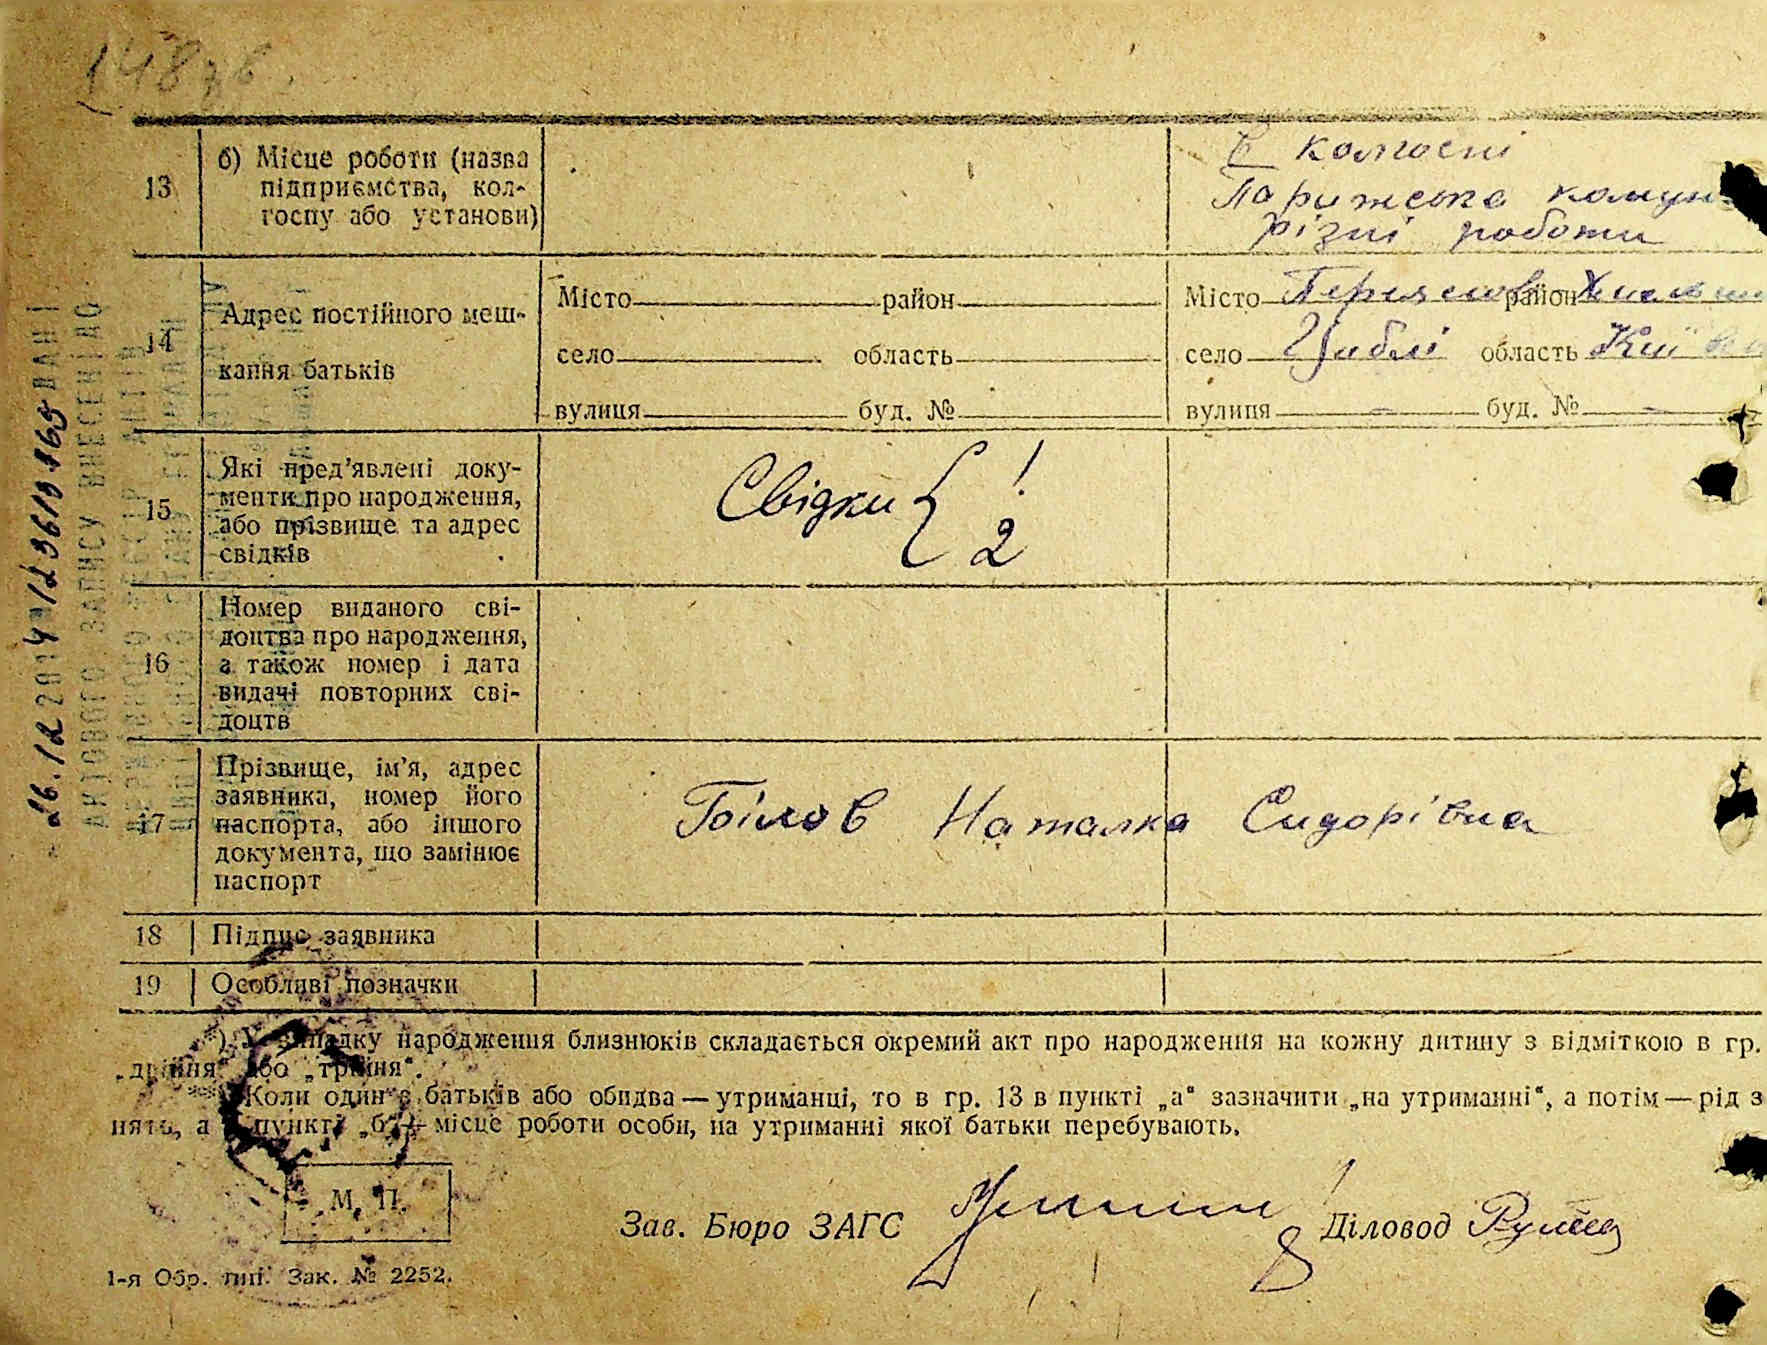 148
13
б) Місце роботи (назва
підприємства, кол-
госпу або установи)
В колгоспі
Парижська комун
різні роботи
14
Адрес постійного меш-
кання батьків
Місто район
село область
вулиця буд. №
Місто Переяслов район Хмельни
село Циблі область Київ
вулиця – буд. № –
15
Які пред’явлені доку-
менти про народження,
або прізвище та адрес
свідків
Свідки { 1
2
16
Номер виданого сві-
доцтва про народження,
а також номер і дата
видачі повторних сві-
доцтв
17
Прізвище, ім’я, адрес
заявника, номер його
паспорта, або іншого
документа, що замінює
паспорт
Наталка Сидорівна
18 Підпис заявника
19 Особливі позначки
*) У випадку народження близнюків складається окремий акт про народження на кожну дитину з відміткою в гр.
„двійня“ або „трійня“.
**) Коли один з батьків або обидва — утриманці, то в гр. 13 в пункті „а“ зазначити „на утриманні“, а потім — рід з
нять, а в пункті „б“ — місце роботи особи, на утриманні якої батьки перебувають.
М. П.
Зав. Бюро ЗАГС
Діловод
1-я Обр. тип. Зак. № 2252.
26.12.2014 12361016
АКТОВОГО ЗАПИСУ ВНЕСЕНІ ДО